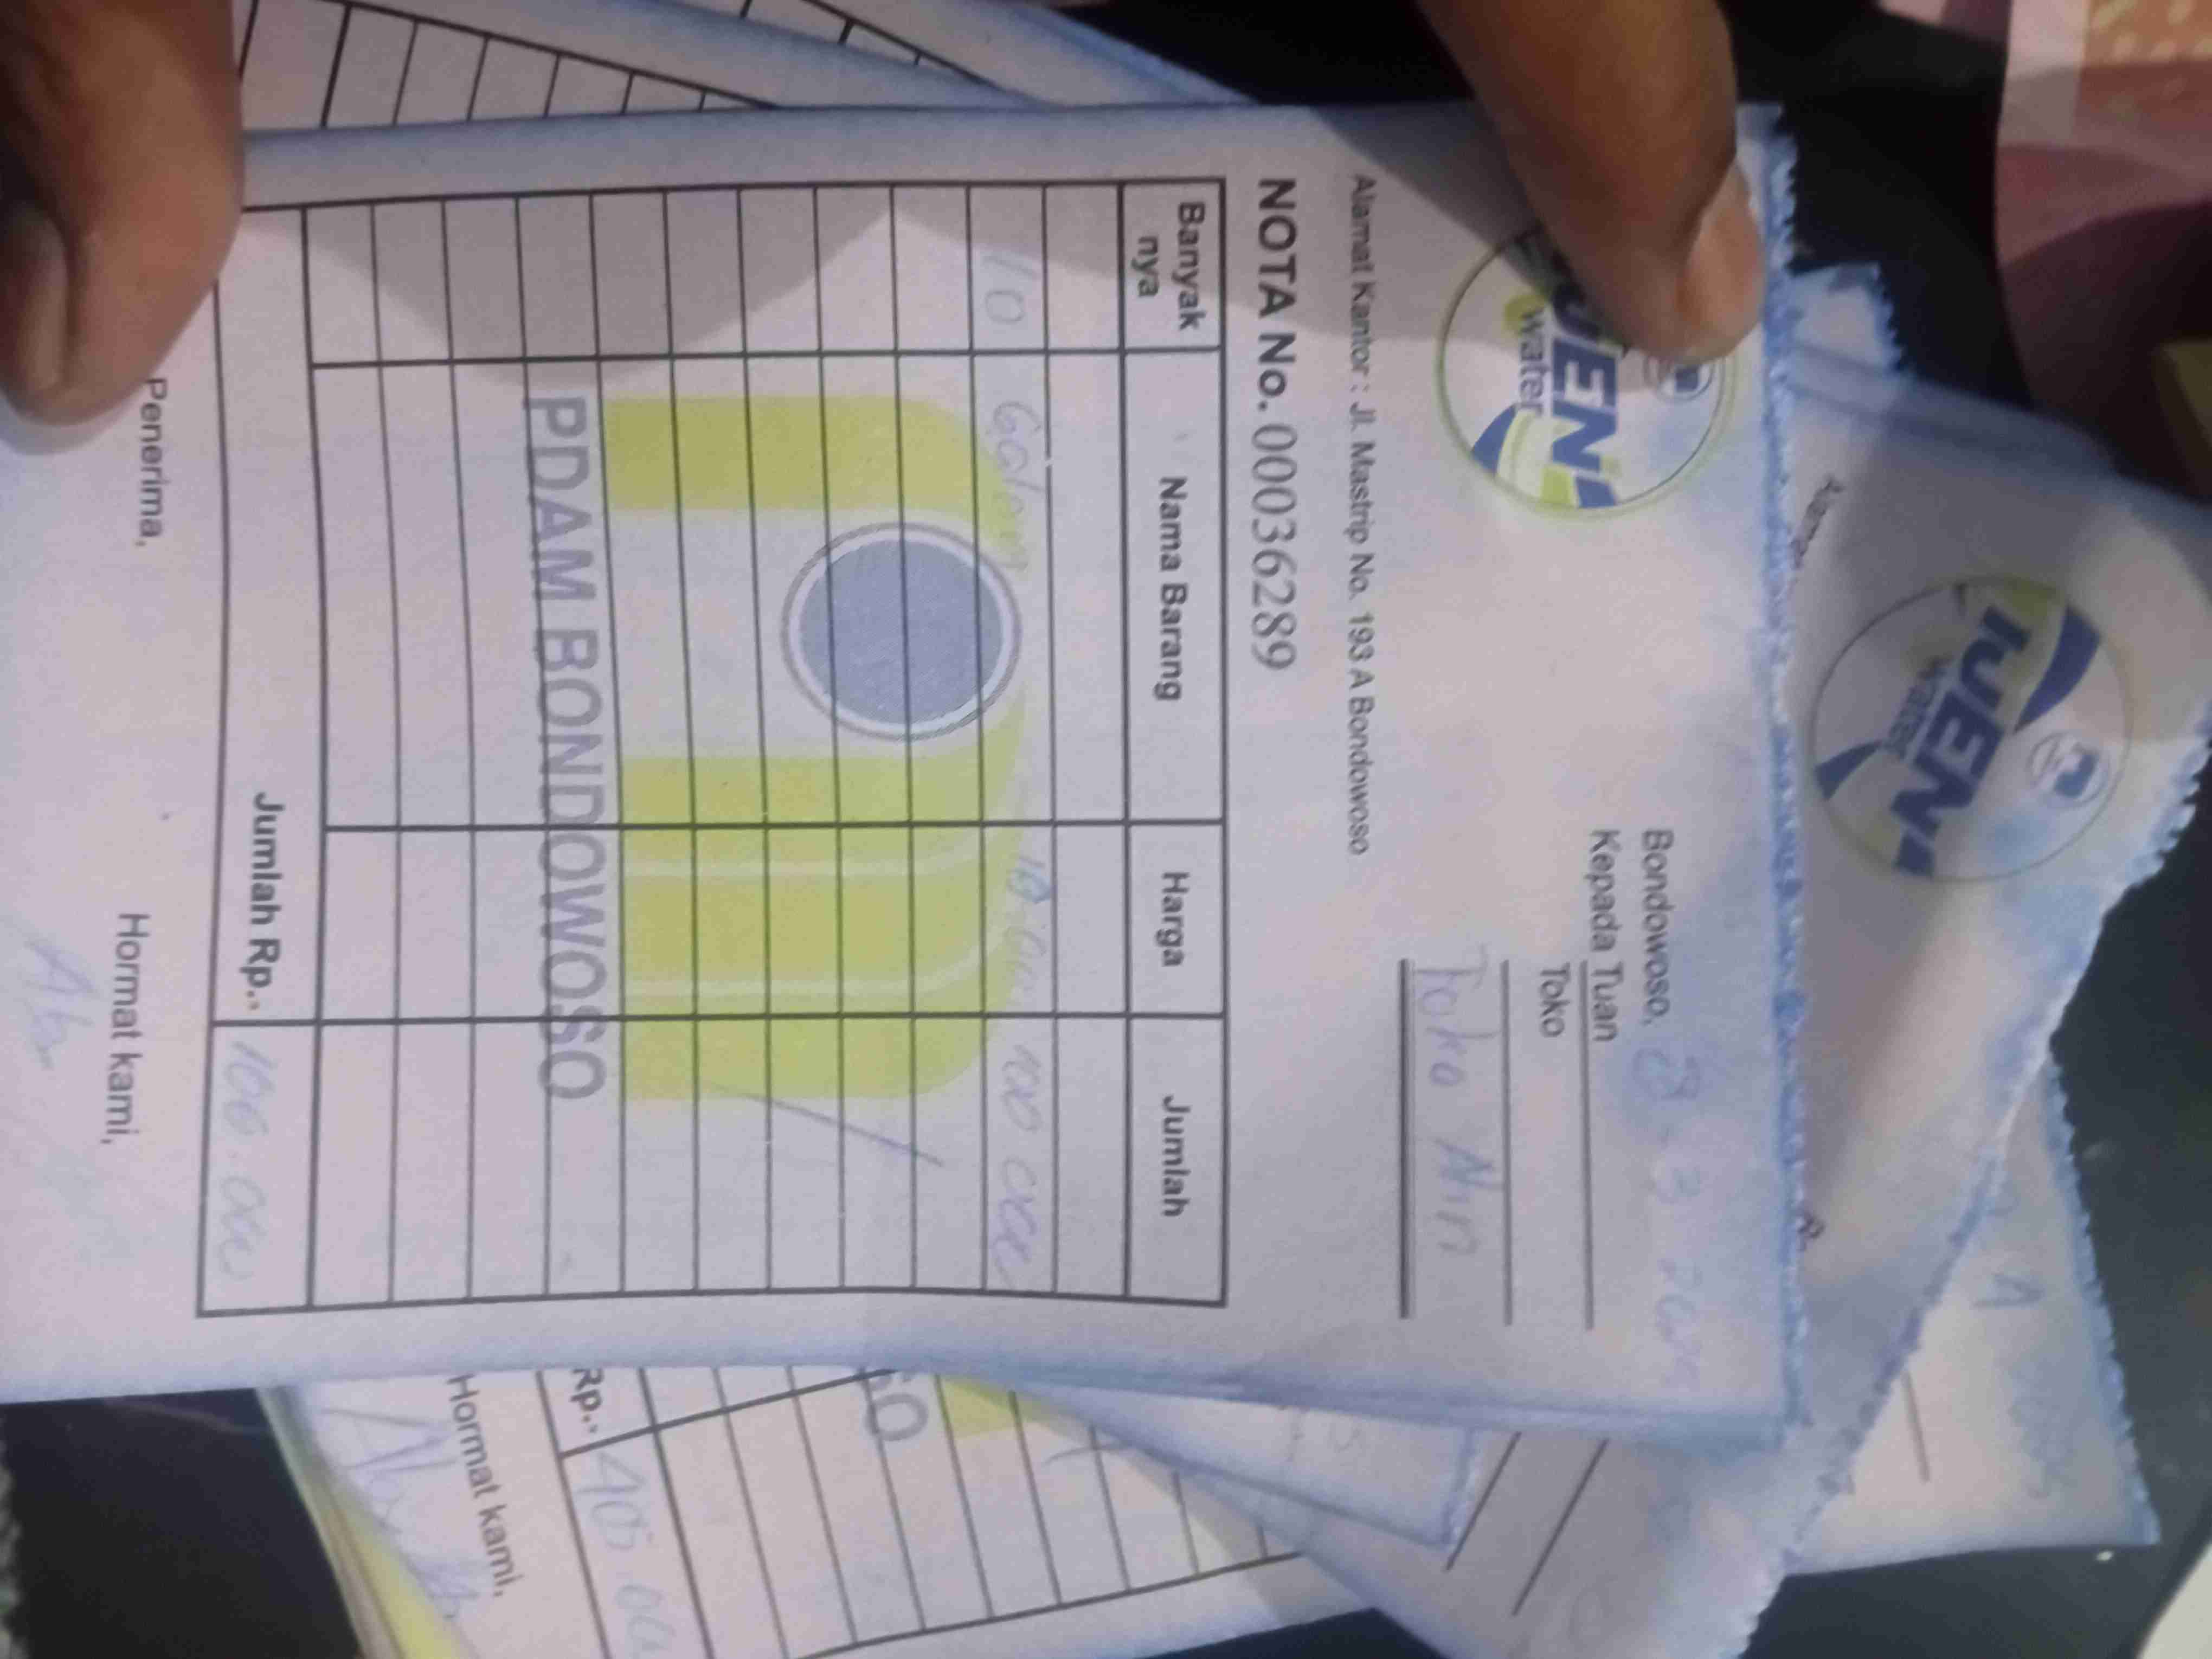 IJEN
water
Bondowoso, 3
Kepada Tuan
Toko
Toko Nin
Alamat Kantor : Jl. Mastrip No. 193 A Bondowoso
NOTA No. 00036289
Banyak nya Nama Barang Harga Jumlah
10 Galon 10.000 100 000
PDAM BONDOWOSO
Jumlah Rp.. 100.000
Penerima, Hormat kami,
IJEN
water
Rp..
Hormat kami,